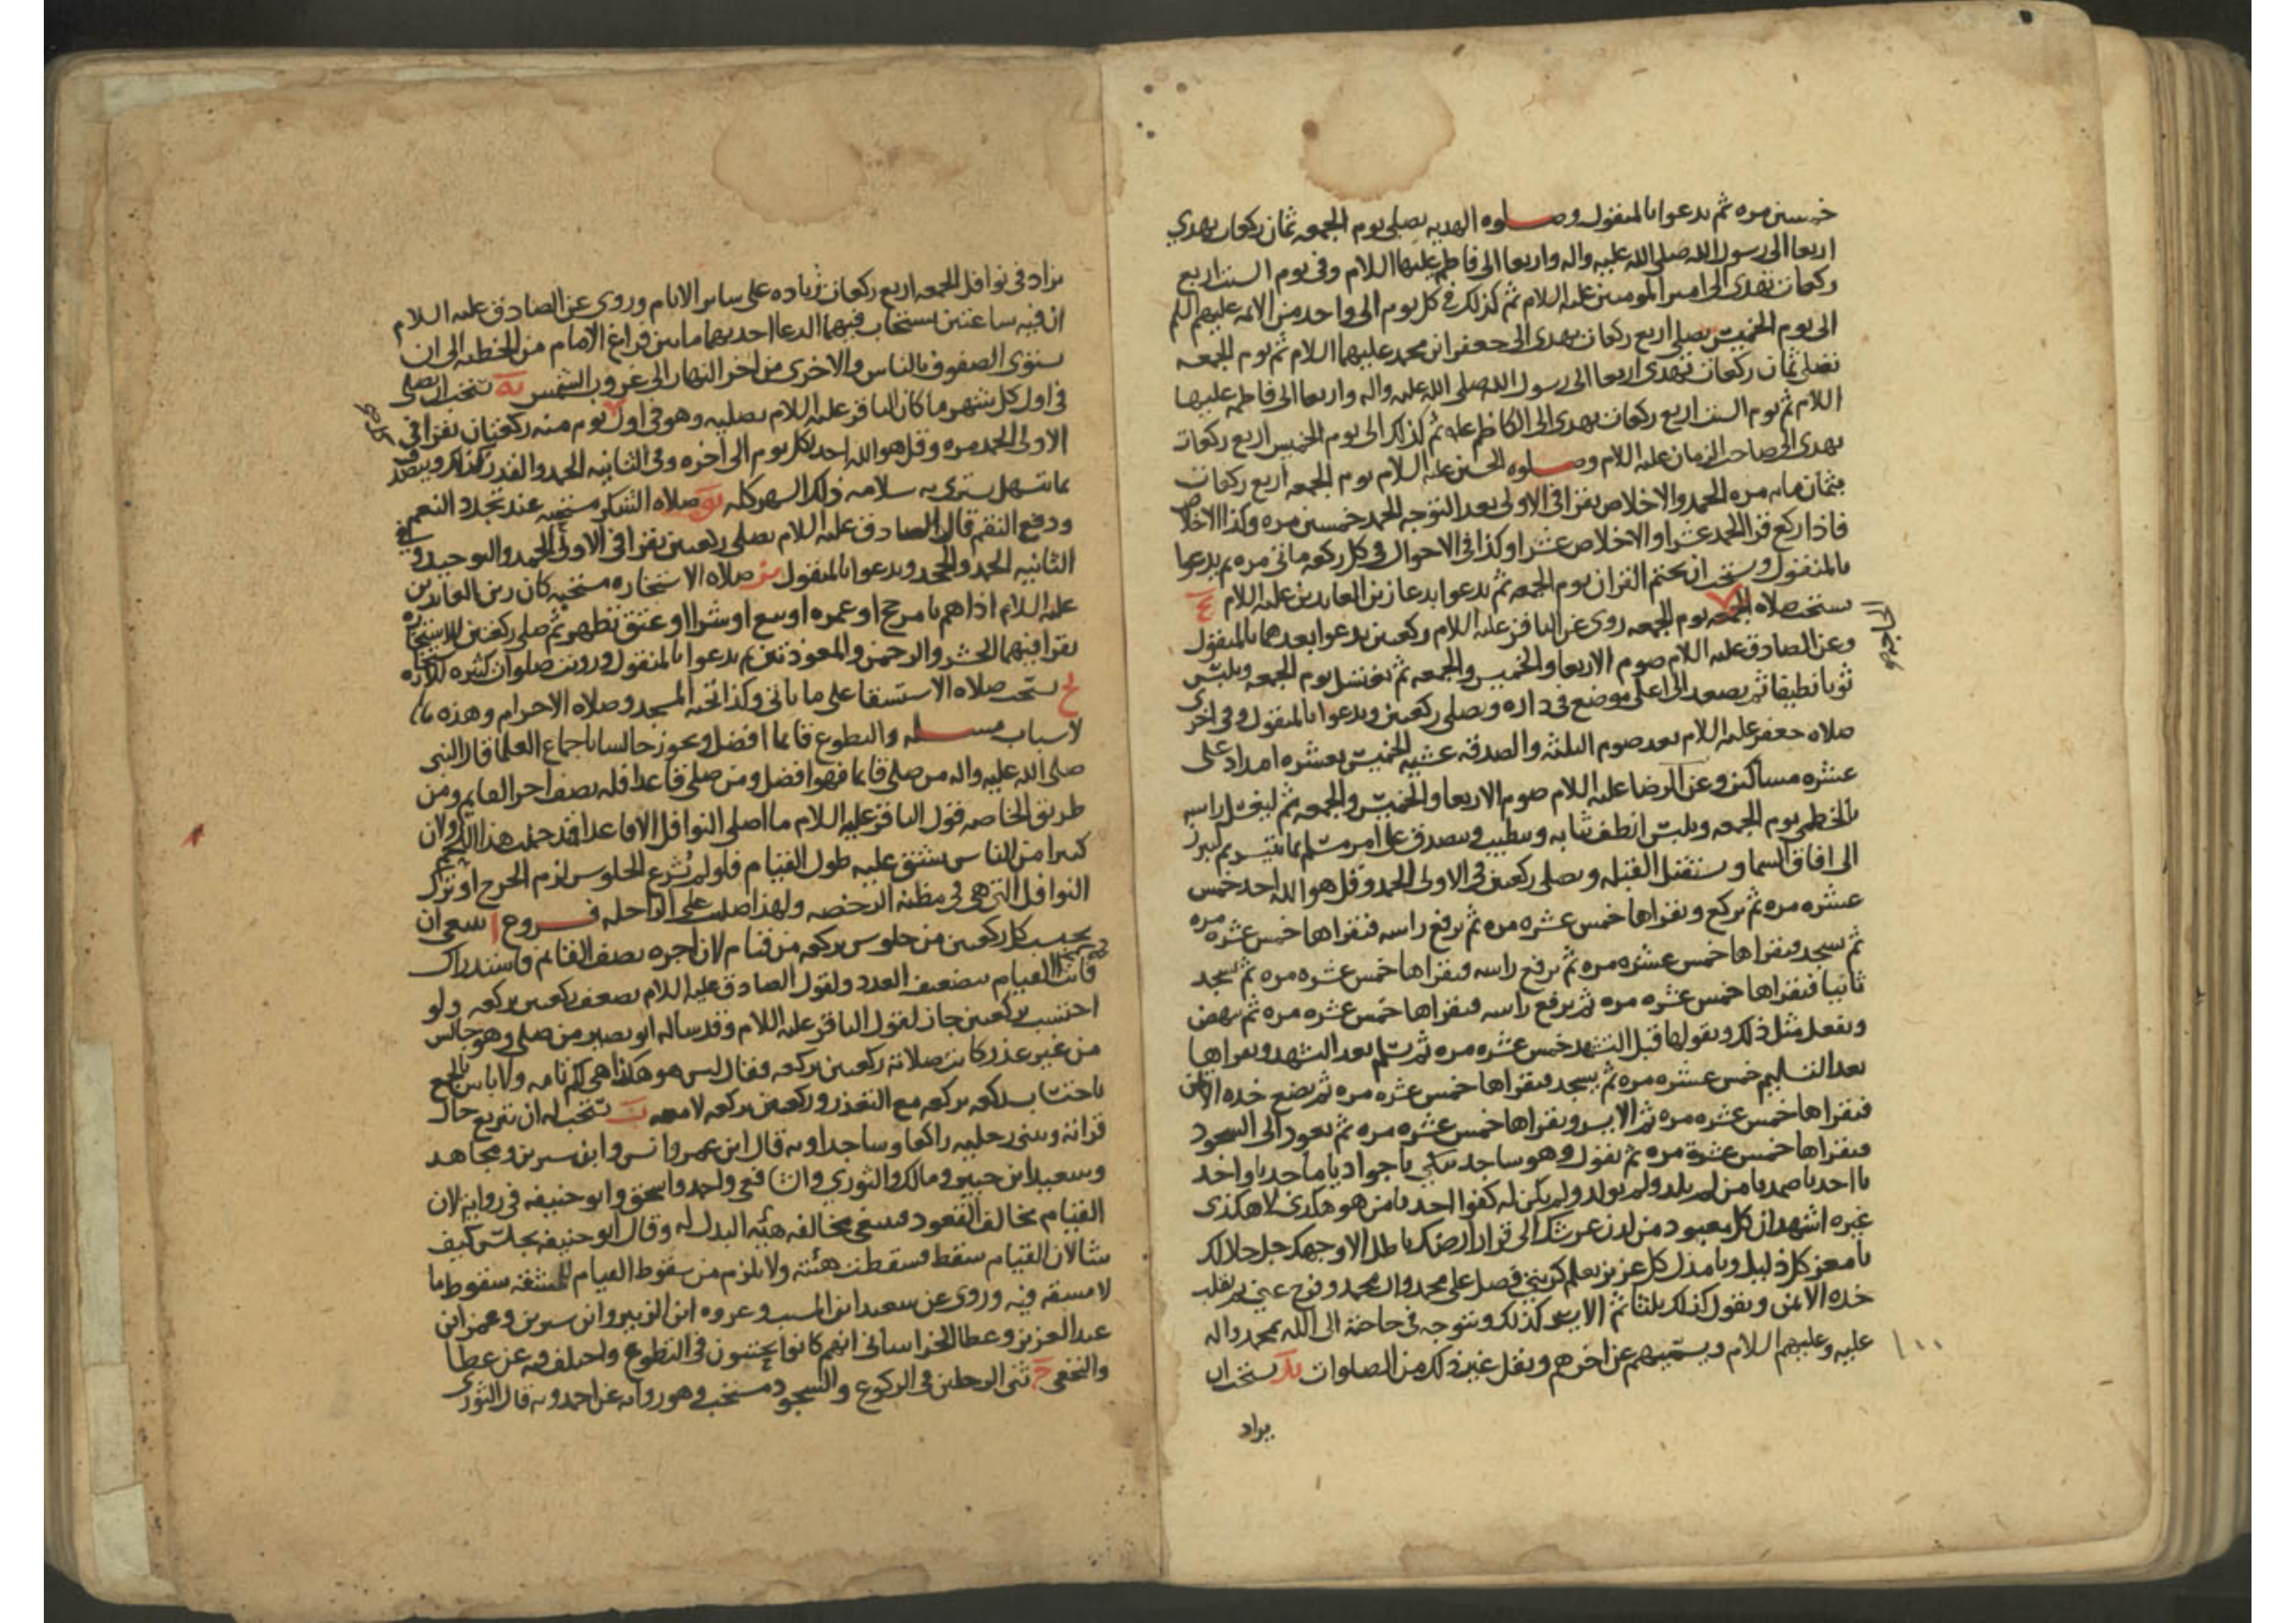 خمسين مره ثم يدعوا بالمنقول وصلوه الهديه يصلى يوم الجمعه ثمان ركعات يهدي
اربعا الى رسول الله صلى الله عليه واله واربعا الى فاطمه عليها السلام وفى يوم السبت اربع
ركعات تهدى الى امير المومنين عليه السلام ثم كذلك فى كل يوم الى واحد من الائمه عليهم السلم
الى يوم الخميس يصلى اربع ركعات يهدى الى جعفر ابن محمد عليهما السلام ثم يوم الجمعه
تصلى ثمان ركعات تهدى اربعا الى رسول الله صلى الله عليه واله واربعا الى فاطمه عليها
السلام ثم يوم السبت اربع ركعات يهدى الى الكاظم علىه ثم كذلك الى يوم الخميس اربع ركعات
يهدى الى صاحب الزمان عليه السلام وصلوه الحسين عليه السلام يوم الجمعه اربع ركعات
بثمان مايه مره الحمد والاخلاص يقرا فى الاولى بعد التوجه الحمد خمسين مره وكذا الاخلاص
فاذا ركع قرا الحمد عشرا والاخلاص عشرا وكذا فى الاحوال فى كل ركعه مائتى مره ثم يدعوا
بالمنقول ويستحب ان يختم القران يوم الجمعه ثم يدعوا بدعا زين العابدين عليه السلام يج
يستحب صلاه الجمعه يوم الجمعه روى عن الباقر عليه السلام ركعتين يدعوا بعدهما بالمنقول
الحاجه
وعن الصادق عليه السلام صوم الاربعا والخميس والجمعه ثم يغتسل يوم الجمعه ويلبس
ثوبا نظيفا ثم يصعد الى اعلى موضع فى داره ويصلى ركعتين ويدعوا بالمنقول وفى اخرى
صلاه جعفر عليه السلام بعد صوم الثلثه والصدقه عشيه الخميس بعشره امداد على
عشره مساكين وعن الرضا عليه السلام صوم الاربعا والخميس والجمعه ثم ليغسل راسه
بالخطمى يوم الجمعه ويلبس انظف ثيابه ويتطيب ويتصدق على امرء مسلم بما تيسر ثم يبرز
الى افاق السما ويستقبل القبله ويصلى ركعتين فى الاولى الحمد وقل هو الله احد خمس
عشره مره ثم يركع ويقراها خمس عشره مره ثم يرفع راسه فيقراها خمس عشره مره
ثم يسجد فيقراها خمس عشره مره ثم يرفع راسه فيقراها خمس عشره مره ثم يسجد
ثانيا فيقراها خمس عشره مره ثم يرفع راسه فيقراها خمس عشره مره ثم ينهض
ويفعل مثل ذلك ويقولها قبل التشهد خمس عشره مره ثم يتمم بعد التشهد ويقراها
بعد التسليم خمس عشره مره ثم يسجد فيقراها خمس عشره مره ثم يضع خده الايمن
فيقراها خمس عشره مره ثم الايسر ويقراها خمس عشره مره ثم يعود الى السجود
فيقراها خمس عشرة مره ثم يقول وهو ساجد يبكي يا جواد يا ماجد يا واحد
يا احد يا صمد يا من لم يلد ولم يولد ولم يكن له كفوا احد يا من هو هكذى لا هكذى
غيره اشهد ان كل معبود من لدن عرشك الى قرار ارضك باطل الا وجهك جل جلالك
يا معز كل ذليل ويا مذل كل عزيز تعلم كربتى فصل على محمد وال محمد وفرج عنى ثم يقلب
خده الايمن ويقول كذلك ثلثا ثم الايسر كذلك ويتوجه فى حاجته الى الله بمحمد واله
عليه وعليهم السلام ويسميهم عن اخرهم ونقل غير ذلك من الصلوات يد يستحب ان
١٠٠
يزاد
يزاد فى نوافل الجمعه اربع ركعات زياده على ساير الايام وروى عن الصادق عليه السلام
ان فيه ساعتين يستجاب فيهما الدعا احديهما ما بين فراغ الامام من الخطبه الى ان
يستوى الصفوف بالناس والاخرى من اخر النهار الى غروب الشمس يه يستحب ان يصلى
فى اول كل شهر ما كان الباقر عليه السلام يصليه وهو فى اول يوم منه ركعتان يقرا فى
الاولى الحمد مره وقل هو الله احد بكل يوم الى اخره وفى الثانيه الحمد والقدر كذلك ويتصدق
بما تسهل يشترى به سلامه ذلك الشهر كله يو صلاه الشكر مستحبه عند تجدد النعم
ودفع النقم قال الصادق عليه السلام يصلى ركعتين يقرا فى الاولى الحمد والتوحيد وفى
الثانيه الحمد والجحد ويدعوا بالمنقول يز صلاه الاستخاره مستحبه كان زين العابدين
عليه السلام اذا هم بامر حج او عمره او بيع او شرا او عتق تطهر ثم صلى ركعتين للاستخاره
يقرا فيهما الحشر والرحمن والمعوذتين ثم يدعوا بالمنقول ورويت صلوات كثيره للاستخاره
يح يستحب صلاه الاستسقا على ما ياتى وكذا تحيه المسجد وصلاه الاحرام وهذه
لاسباب مسئله والتطوع قايما افضل ويجوز جالسا باجماع العلما قال النبى
صلى الله عليه واله من صلى قايما فهو افضل ومن صلى قاعدا فله نصف اجر القايم ومن
طريق الخاصه قول الباقر عليه السلام ما اصلى النوافل الا قاعدا قد حملت هذا اللحم ولان
كثيرا من الناس يشق عليه طول القيام فلو لم يشرع الجلوس لزم الحرج او ترك
النوافل التى هى فى مظنه الرخصه ولهذا صليت على الراحله فروع ا ينبغى ان
يحسب كل ركعتين من جلوس بركعه من قيام لان اجره نصف القائم فاستدراك
فائت القيام بتضعيف العدد ولقول الصادق عليه السلام يضعف ركعتين بركعه ولو
احتسب بركعتين جاز لقول الباقر عليه السلام وقد ساله ابو بصير من صلى وهو جالس
من غير عذر كانت صلاته ركعتين بركعه فقال ليس هو هكذا هى لكم تامه ولا باس بالجمع
باحتساب ركعه بركعه مع التعذر وركعتين بركعه لا معه ب يستحب له ان يتربع حال
قراته ويثنى رجليه راكعا وساجدا وبه قال ابن عمر وانس وابن سيرين ومجاهد
وسعيد ابن جبير ومالك والثوري والشافعى واحمد واسحق وابو حنيفه فى روايه لان
القيام يخالف القعود فينبغى مخالفه هيئه البدل له وقال ابو حنيفه يجلس كيف
شا لان القيام سقط فسقطت هيئته ولا يلزم من سقوط القيام للمشقه سقوط ما
لا مشقه فيه وروى عن سعيد ابن المسيب وعروه ابن الزبير وابن سيرين وعمر ابن
عبد العزيز وعطا الخراسانى انهم كانوا يحتبون فى التطوع واختلف فيه عن عطا
والنخعى ج ثنى الرجلين فى الركوع والسجود مستحب وهو روايه عن احمد وبه قال الثورى